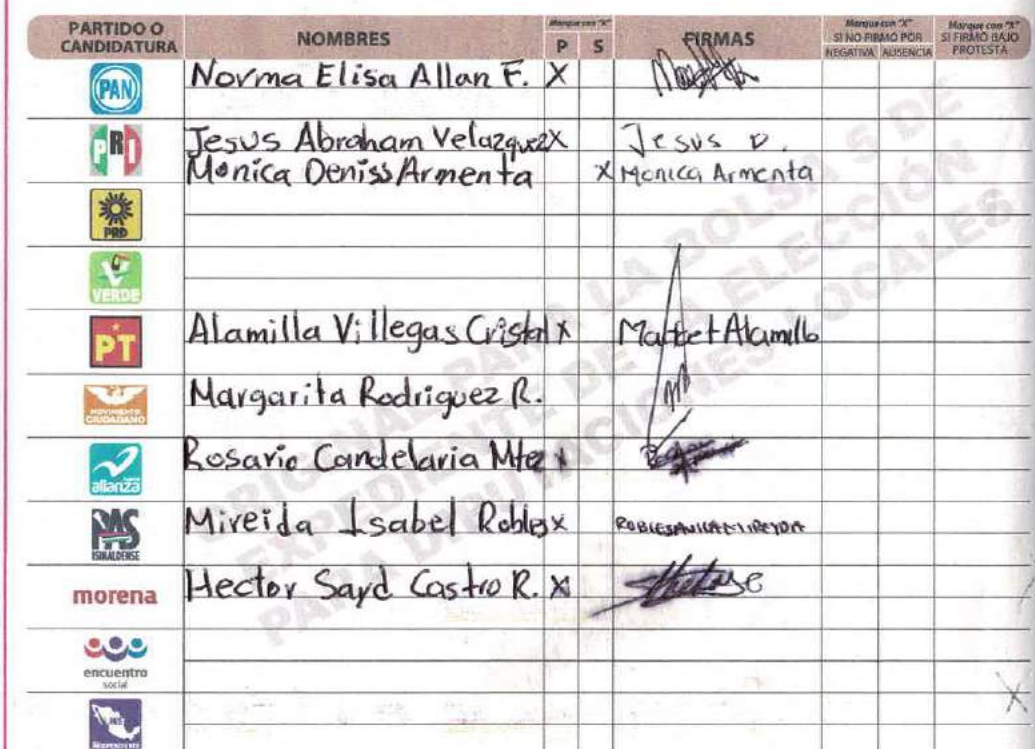 PARTIDO O CANDIDATURA
NOMBRES
Marque con "X"
P S
FIRMAS
Marque con "X" SI NO FIRMÓ POR
NEGATIVA AUSENCIA
Marque con "X" SI FIRMÓ BAJO PROTESTA
PAN Norma Elisa Allan F. X
PRI Jesus Abraham Velazquez X Jesus V.
Monica Deniss Armenta X Monica Armenta
PRD
VERDE
PT Alamilla Villegas Cristal X Alamillo
MOVIMIENTO CIUDADANO Margarita Rodriguez R.
alianza Rosario Candelaria Mtez X
PAS SINALOENSE Mireida Isabel Robles X
morena Hector Sayd Castro R. X
encuentro social
INDEPENDIENTE
X
ORIGINAL PARA LA BOLSA S DE
EXPEDIENTE DE LA ELECCIÓN
PARA DIPUTACIONES LOCALES